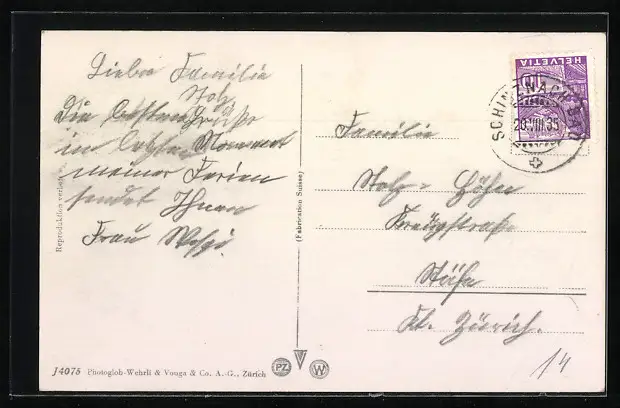 Liebe Familie
Stolz,
Die besten Grüße
im letzten Moment
meiner Ferien
sendet Ihnen
Frau
Familie
Stolz-Höhn
Kreuzstraße
Stäfa
Kt. Zürich.
14
HELVETIA
10
SCHINZNACH-BAD
20.VIII.35
Reproduktion verboten
(Fabrication Suisse)
J4075 Photoglob-Wehrli & Vouga & Co. A.-G., Zürich
PZ W